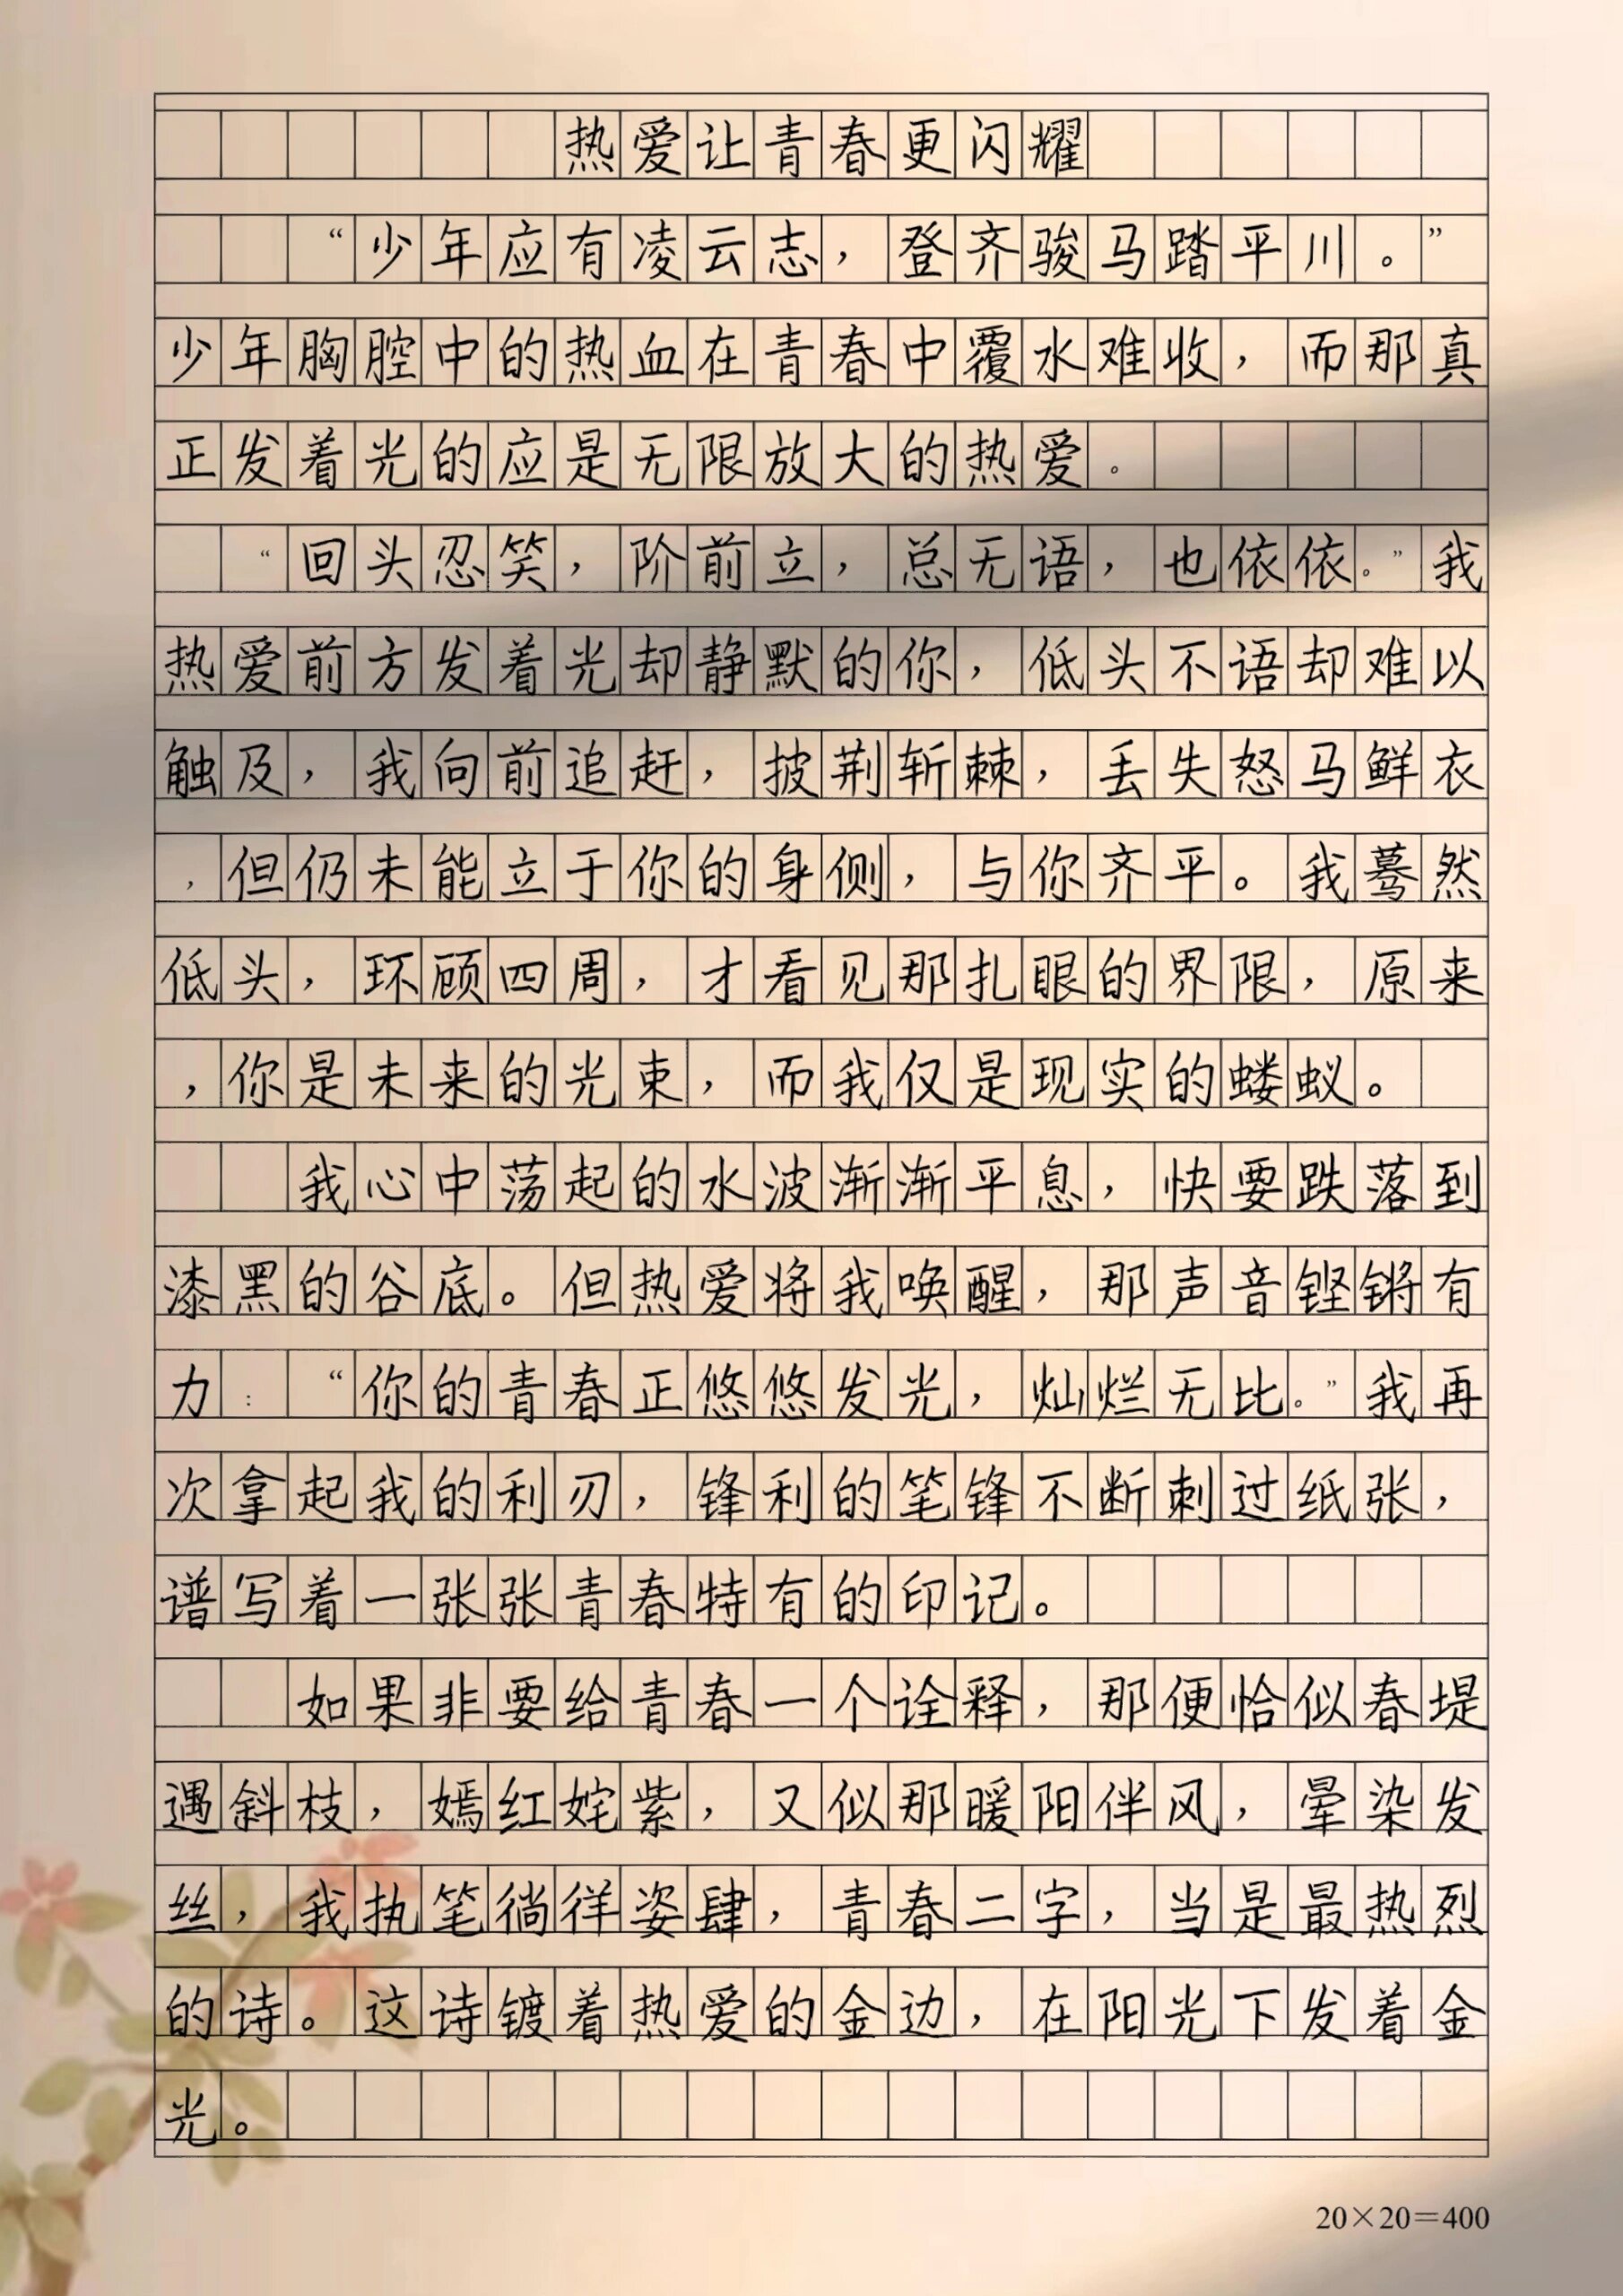 热爱让青春更闪耀
“少年应有凌云志，登齐骏马踏平川。”
少年胸腔中的热血在青春中覆水难收，而那真
正发着光的应是无限放大的热爱。
“回头忍笑，阶前立，总无语，也依依。”我
热爱前方发着光却静默的你，低头不语却难以
触及，我向前追赶，披荆斩棘，丢失怒马鲜衣
，但仍未能立于你的身侧，与你齐平。我蓦然
低头，环顾四周，才看见那扎眼的界限，原来
，你是未来的光束，而我仅是现实的蝼蚁。
我心中荡起的水波渐渐平息，快要跌落到
漆黑的谷底。但热爱将我唤醒，那声音铿锵有
力：“你的青春正悠悠发光，灿烂无比。”我再
次拿起我的利刃，锋利的笔锋不断刺过纸张，
谱写着一张张青春特有的印记。
如果非要给青春一个诠释，那便恰似春堤
遇斜枝，嫣红姹紫，又似那暖阳伴风，晕染发
丝，我执笔徜徉姿肆，青春二字，当是最热烈
的诗。这诗镀着热爱的金边，在阳光下发着金
光。
20×20=400